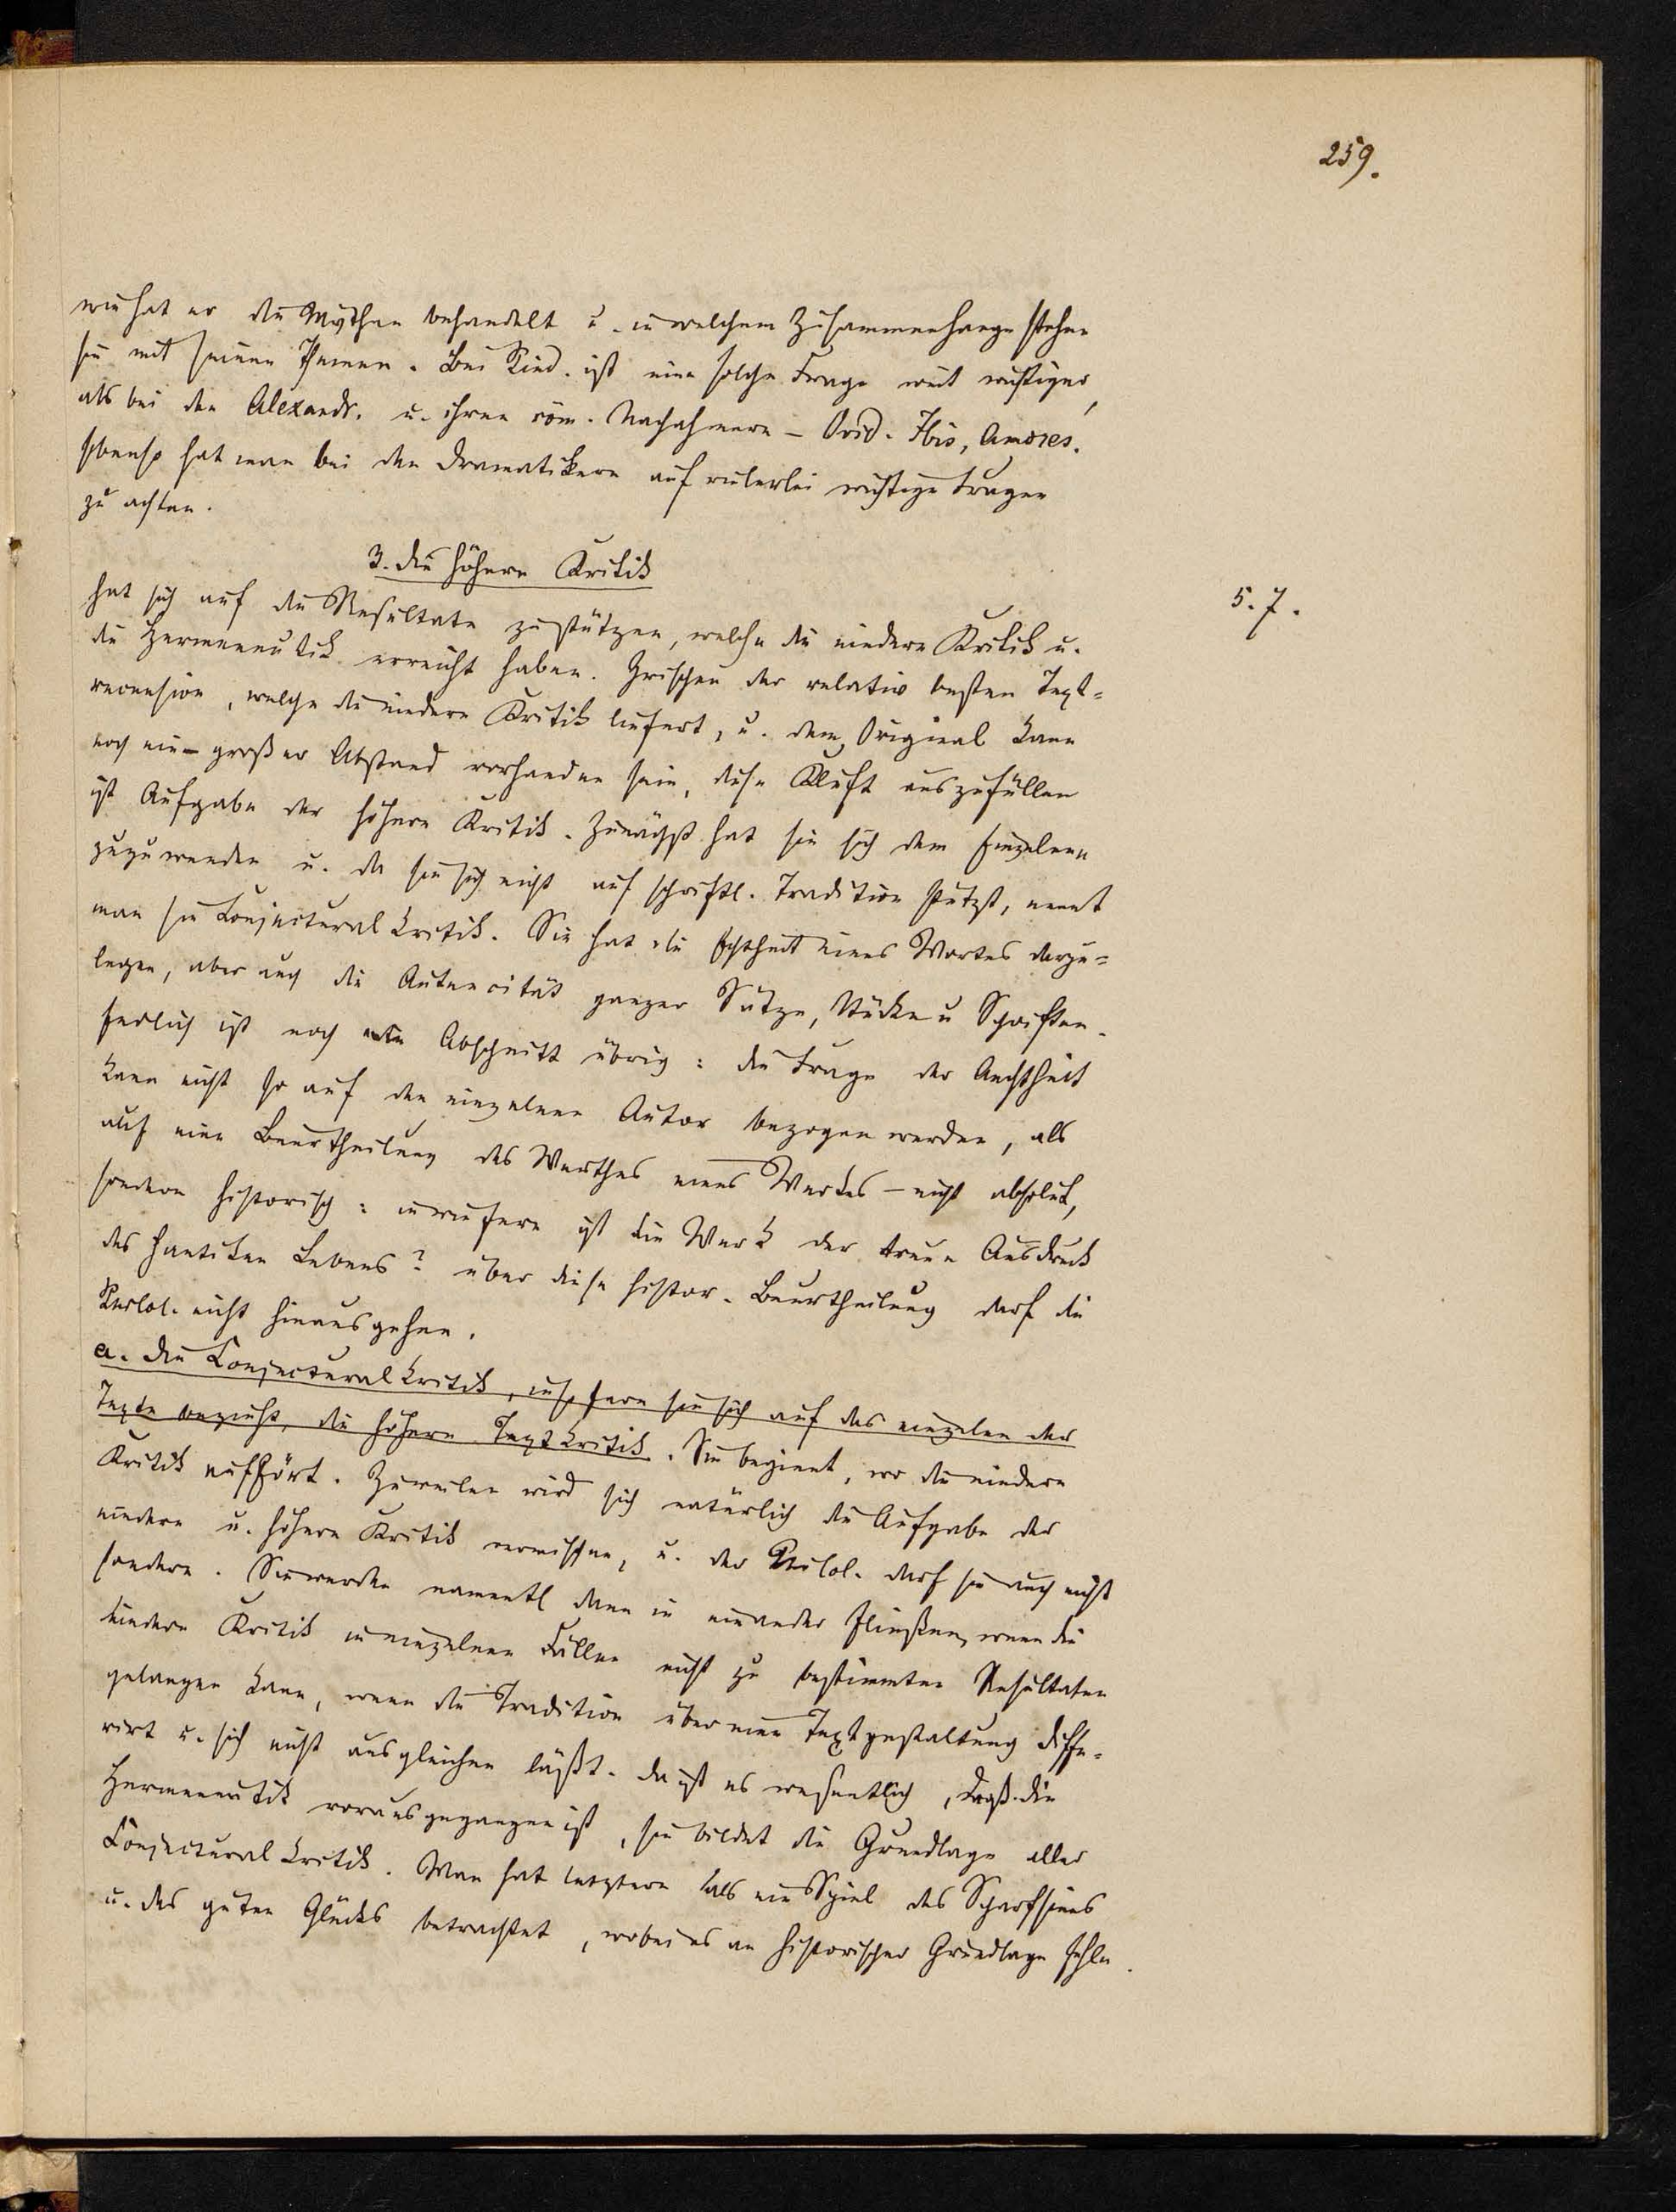 259.
wie hat er die Mythen behandelt u. in welchem Zusammenhange stehen
sie mit seinem Themen. Bei Pind. ist eine solche Frage weit wichtiger,
als bei den Alexandr. u. ihren röm. Nachahmern – Ovid. Ibis, Amores.
Ebenso hat man bei den Dramatikern auf vielerlei wichtige Fragen
zu achten.
3. Die höhere Kritik
5. 7.
hat sich auf die Resultate zu stützen, welche die niedere Kritik u.
die Hermeneutik erreicht haben. Zwischen der relativ besten Text=
recension, welche die niedere Kritik liefert, u. dem Original kann
noch ein großer Abstand vorhanden sein, diese Kluft auszufüllen
ist Aufgabe der höhern Kritik. Zunächst hat sie sich dem Einzelnen
zuzuwenden u. da sie sich nicht auf schriftl. Tradition stützt, nennt
man sie Conjecturalkritik. Sie hat die Echtheit eines Wortes darzu=
legen, aber auch die Autencität ganzer Sätze, Stücke u Schriften.
Endlich ist noch ein Abschnitt übrig: die Frage der Aechtheit
kann nicht so auf den einzelnen Autor bezogen werden, als
auf eine Beurtheilung des Werthes eines Werkes – nicht absolut,
sondern historisch: inwiefern ist die Werk der treue Ausdruck
des antiken Lebens? über diese histor. Beurtheilung darf die
Philol. nicht hinausgehen.
a. Die Conjecturalkritik, insofern sie sich auf das einzelne der
Texte bezieht, die höhere Textkritik. Sie beginnt, wo die niedere
Kritik aufhört. Zuweilen wird sich natürlich die Aufgabe der
niedern u. höhern Kritik vermischen, u. der Philol. darf sie auch nicht
sondern. Sie werden namentl dann in einander fließen, wenn die
niedere Kritik in einzelnen Fällen nicht zu bestimmten Resultaten
gelangen kann, wenn die Tradition über eine Textgestaltung diffe=
rirt u. sich nicht ausgleichen läßt. Da ist es wesentlich, daß die
Hermeneutik vorausgegangen ist, sie bildet die Grundlage aller
Conjecturalkritik. Man hat letztere als ein Spiel des Scharfsinns
u. des guten Glücks betrachtet, wobei es an historischer Grundlage fehle.